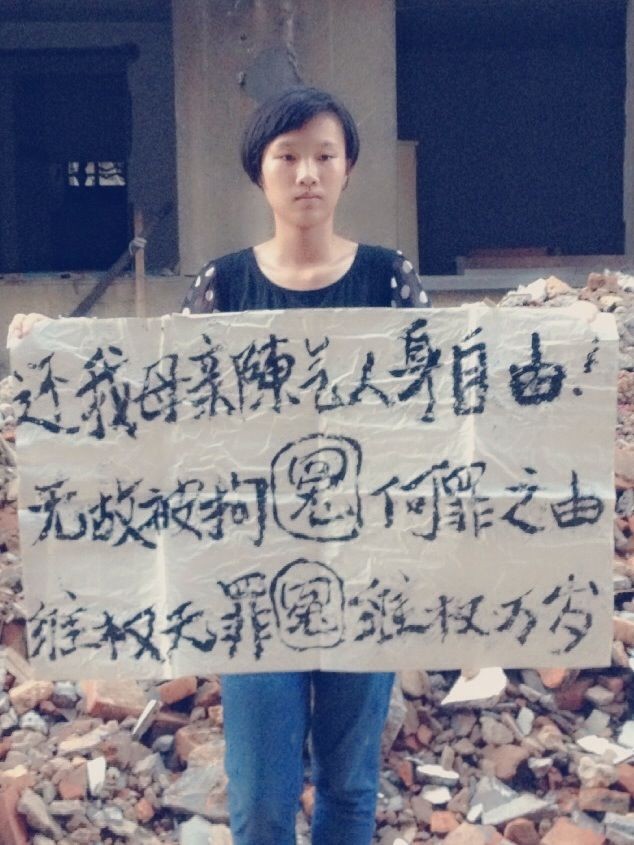 还我母亲陳人身自由!
无故被拘冤何罪之由
维权无罪冤维权万岁